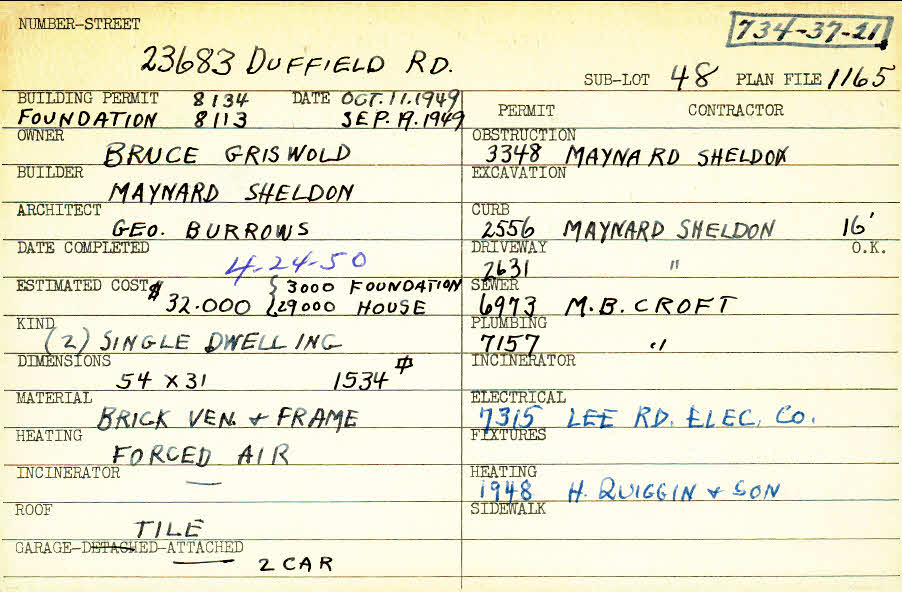 NUMBER-STREET
734-37-21
23683 DUFFIELD RD.
SUB-LOT 48 PLAN FILE 1165
BUILDING PERMIT 8134 DATE OCT. 11. 1949
FOUNDATION 8113 SEP. 19. 1949
PERMIT CONTRACTOR
OWNER
BRUCE GRISWOLD
OBSTRUCTION
3348 MAYNARD SHELDON
BUILDER
MAYNARD SHELDON
EXCAVATION
ARCHITECT
GEO. BURROWS
CURB
2556 MAYNARD SHELDON 16'
DATE COMPLETED
4-24-50
DRIVEWAY O.K.
2631 "
ESTIMATED COST $ 32.000 { 3000 FOUNDATION
29000 HOUSE
SEWER
6973 M.B. CROFT
KIND
(2) SINGLE DWELLING
PLUMBING
7157 "
DIMENSIONS
54 X 31 1534
INCINERATOR
MATERIAL
BRICK VEN. & FRAME
ELECTRICAL
7315 LEE RD. ELEC. CO.
HEATING
FORCED AIR
FIXTURES
INCINERATOR
—
HEATING
1948 H. QUIGGIN & SON
ROOF
TILE
SIDEWALK
GARAGE-DETACHED-ATTACHED
2 CAR